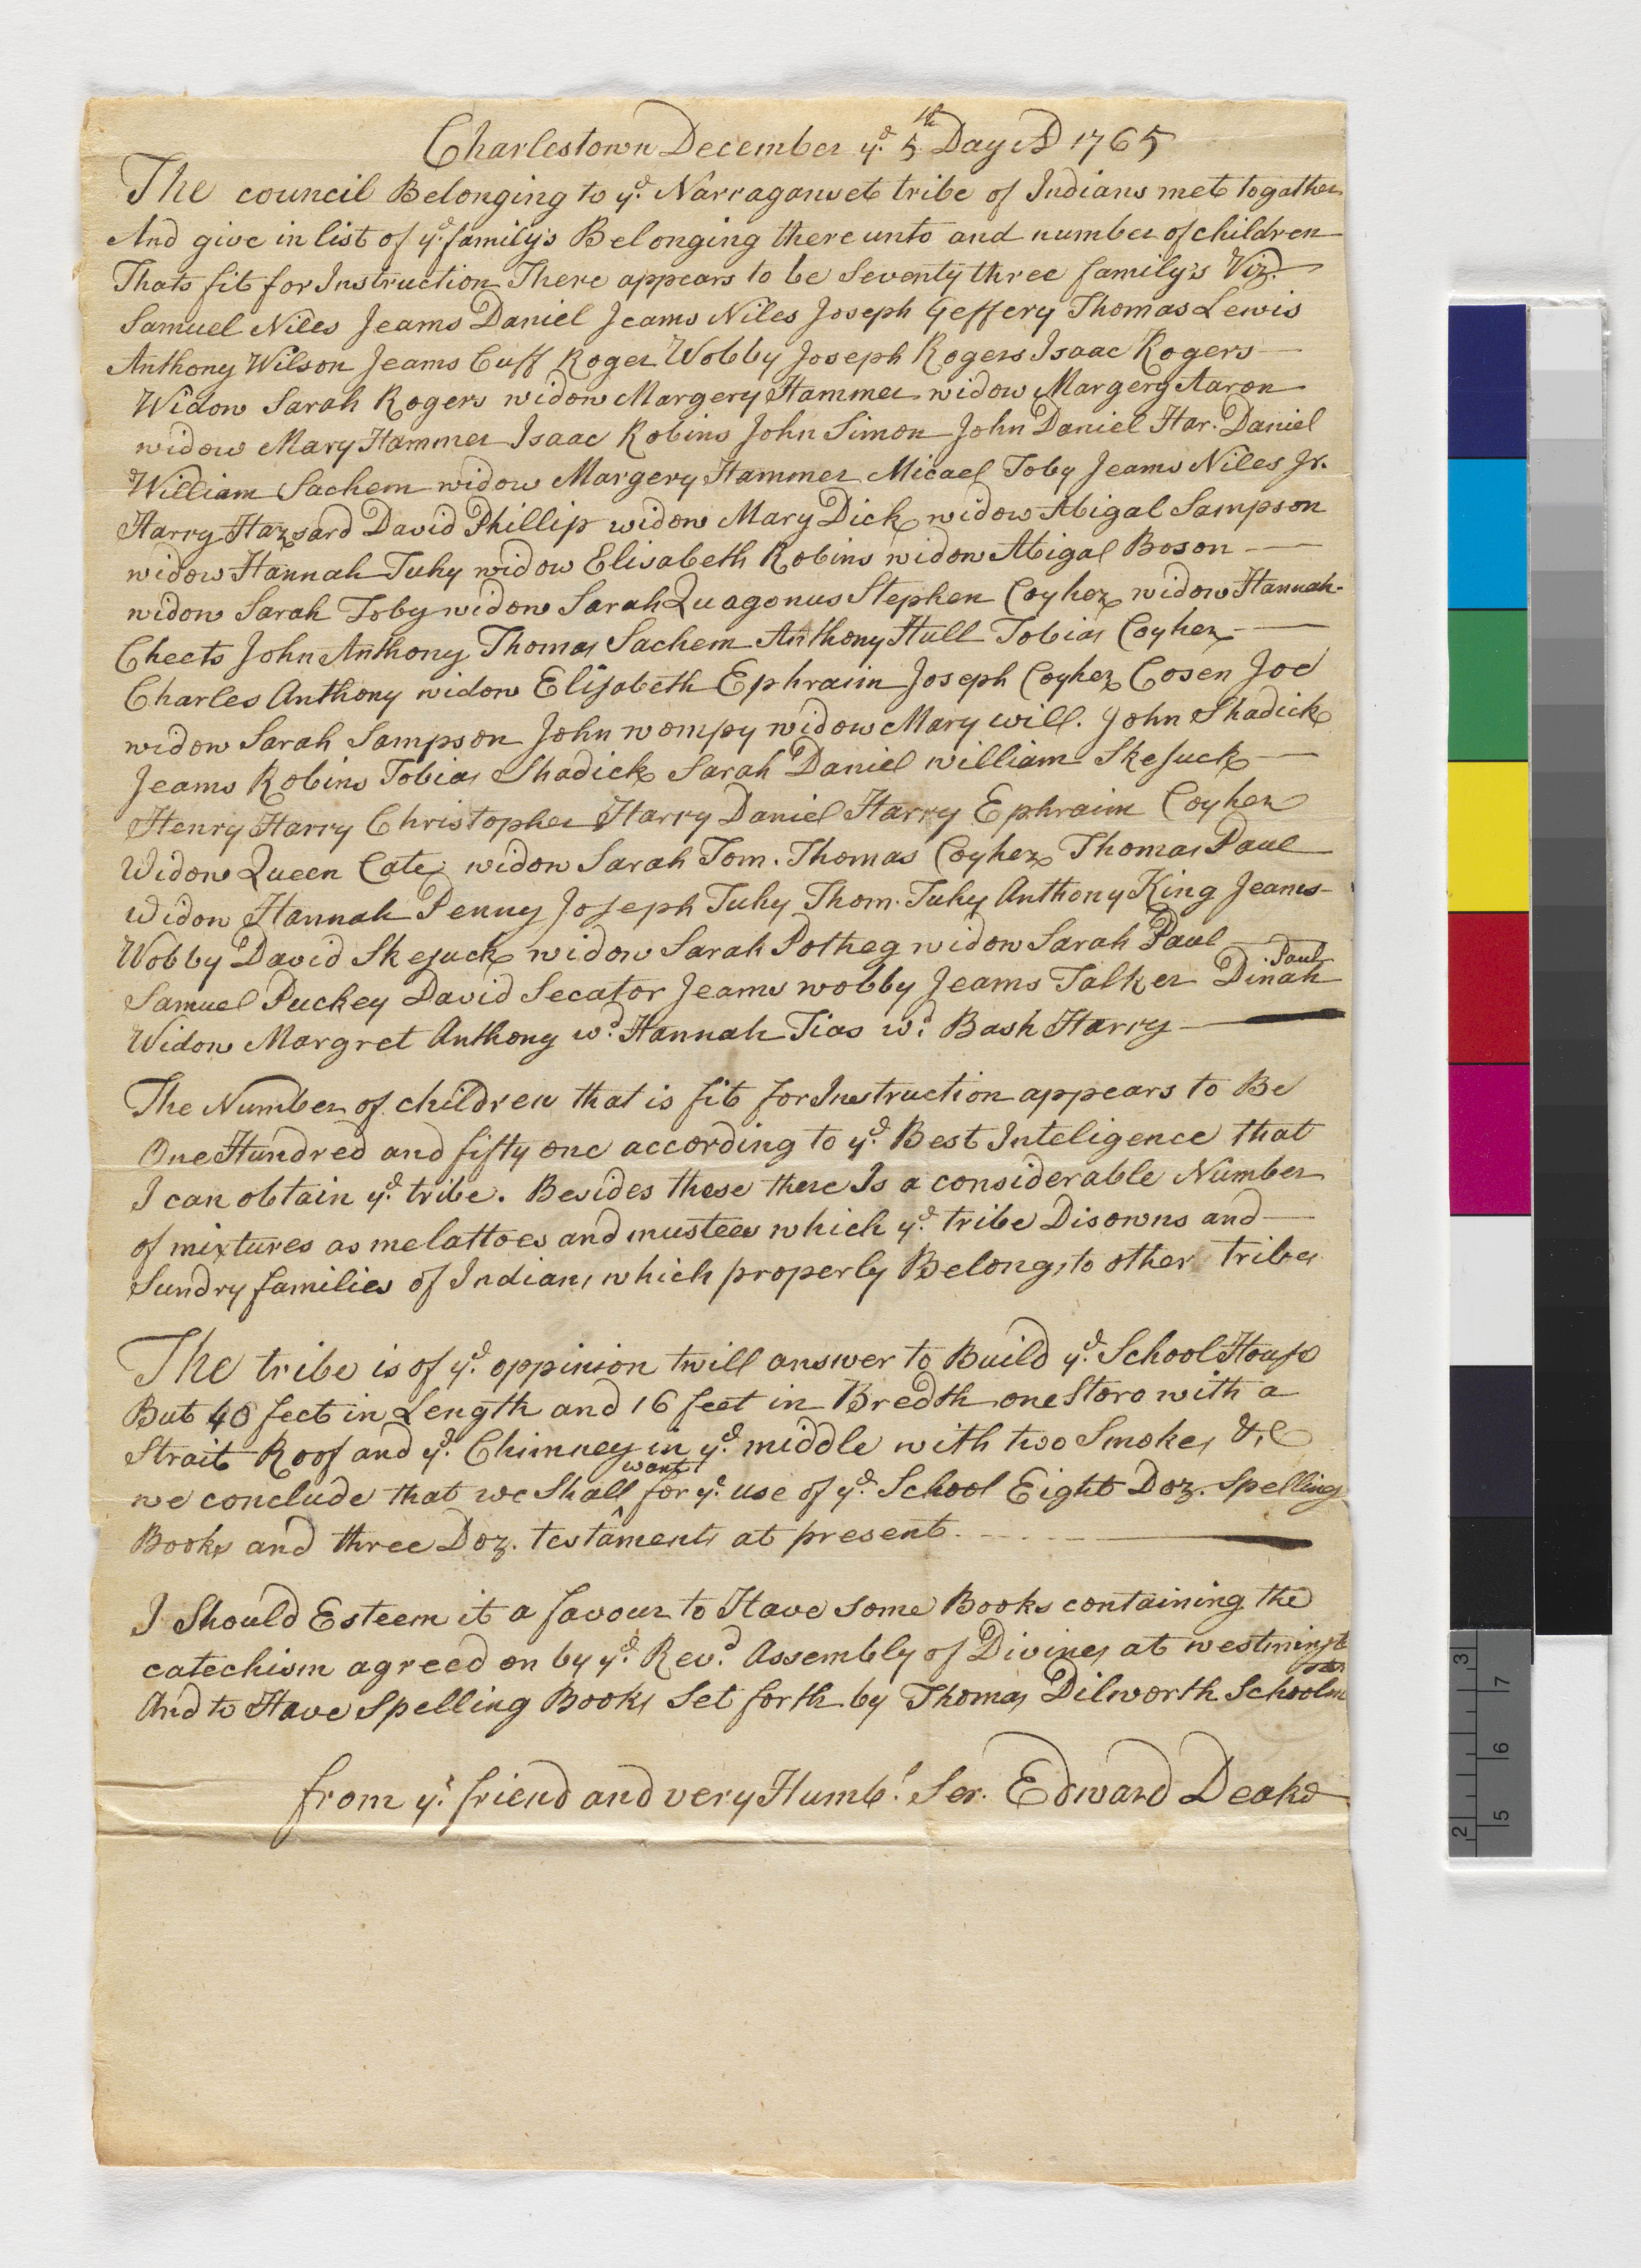 Charlestown December ye. 5th Day AD 1765
The council Belonging to ye. Narraganset tribe of Indians met togather
And give in list of ye. family's Belonging there unto and number of children
Thats fit for Instruction There appears to be Seventy three family's Viz.
Samuel Niles Jeams Daniel Jeams Niles Joseph Geffery Thomas Lewis
Anthony Wilson Jeams Cuff Roger Wobby Joseph Rogers Isaac Rogers
Widow Sarah Rogers widow Margery Hammer widow Margery Aaron
widow Mary Hammer Isaac Robins John Simon John Daniel Har. Daniel
William Sachem widow Margery Hammer Micael Toby Jeams Niles Jr.
Harry Hazsard David Phillip widow Mary Dick widow Abigal Sampson
widow Hannah Tuhy widow Elisabeth Robins widow Abigal Boson
widow Sarah Toby widow Sarah Quagonus Stephen Coyhez widow Hannah
Cheets John Anthony Thomas Sachem Anthony Hull Tobias Coyhez
Charles Anthony widow Elisabeth Ephraim Joseph Coyhez Cosen Joe
widow Sarah Sampson John wompy widow Mary will. John Shadick
Jeams Robins Tobias Shadick Sarah Daniel william Skesuck
Henry Harry Christopher Harry Daniel Harry Ephraim Coyhez
Widow Queen Cate widow Sarah Tom. Thomas Coyhez Thomas Paul
widow Hannah Penny Joseph Tuhy Thom. Tuhy Anthony King Jeams
Wobby David Skesuck widow Sarah Potheg widow Sarah Paul
Samuel Puckey David Secator Jeams wobby Jeams Talker Dinah Paul
Widow Margret Anthony wd. Hannah Tias wd. Bash Harry
The Number of children that is fit for Instruction appears to Be
One Hundred and fifty one according to ye. Best Inteligence that
I can obtain ye. tribe. Besides these there Is a considerable Number
of mixtures as melattoes and mustees which ye. tribe Disowns and
Sundry families of Indians which properly Belongs to other tribes
The tribe is of ye. oppinion twill answer to Build ye. School House
But 40 feet in Length and 16 feet in Bredth one Storo with a
Strait Roof and ye. Chimney in ye. middle with two Smokes &c
we conclude that we Shall want for ye. use of ye. School Eight Doz. Spelling
Books and three Doz. testaments at present
I Should Esteem it a favour to Have some Books containing the
catechism agreed on by ye. Revd. Assembly of Divines at westminster
And to Have Spelling Books Set forth by Thomas Dilworth Schoolmr
from yr. friend and very Humbl. Ser. Edward Deake
2 3
5 6 7